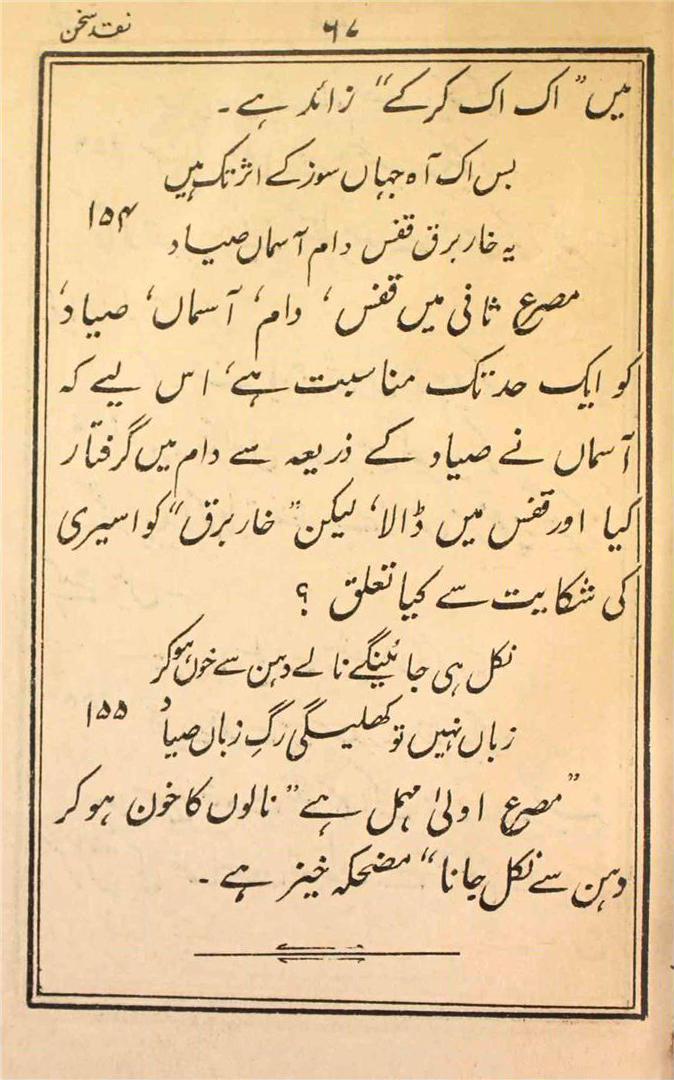 نقد سخن
۶۷
میں ”اک اک کرکے“ زائد ہے۔
بس اک آہ جہاں سوز کے اثر تک ہیں
یہ خار برق قفس دام آسماں صیاد ۱۵۴
مصرع ثانی میں قفس، دام، آسماں، صیاد،
کو ایک حد تک مناسبت ہے، اس لیے کہ
آسماں نے صیاد کے ذریعہ سے دام میں گرفتار
کیا اور قفس میں ڈالا، لیکن ”خار برق“ کو اسیری
کی شکایت سے کیا تعلق ؟
نکل ہی جائینگے نالے دہن سے خوں ہوکر
زباں نہیں تو کھلیگی رگِ زباں صیاد ۱۵۵
”مصرع اولیٰ مہمل ہے ”نالوں کا خون ہوکر
دہن سے نکل جانا“ مضحکہ خیز ہے۔